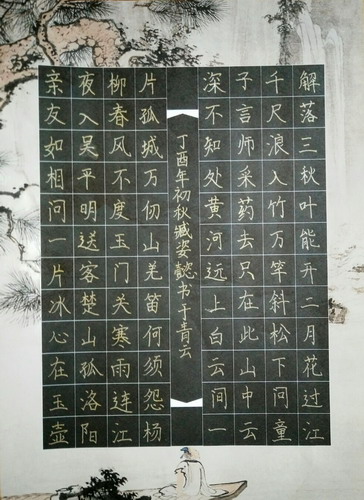 解落三秋叶能开二月花过江
千尺浪入竹万竿斜松下问童
子言师采药去只在此山中云
深不知处黄河远上白云间一
丁酉年初秋臧姿懿书于青云
片孤城万仞山羌笛何须怨杨
柳春风不度玉门关寒雨连江
夜入吴平明送客楚山孤洛阳
亲友如相问一片冰心在玉壶